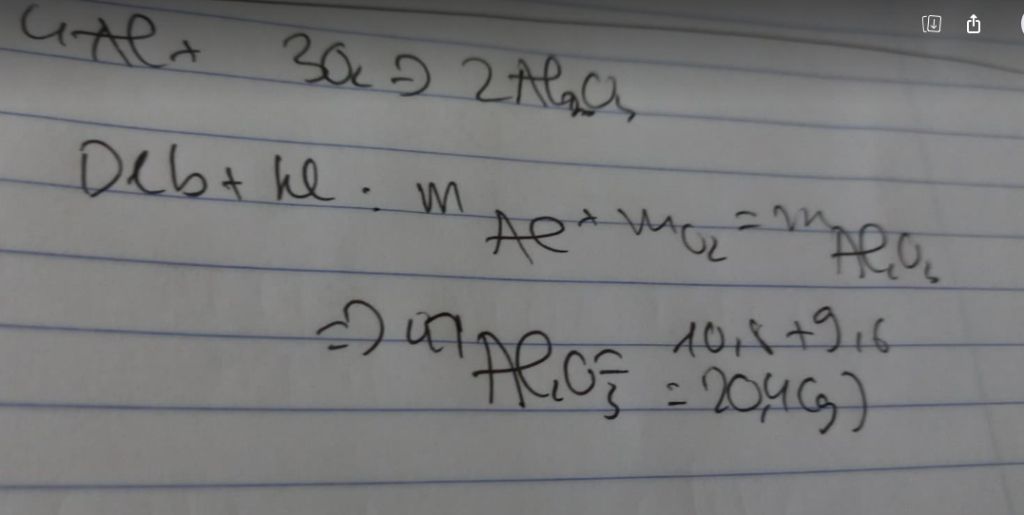 4Al + 3O₂ => 2Al₂O₃
Dlbtkl: m Al + m O₂ = m Al₂O₃
=> m Al₂O₃ = 10,8 + 9,6
= 20,4 (g)